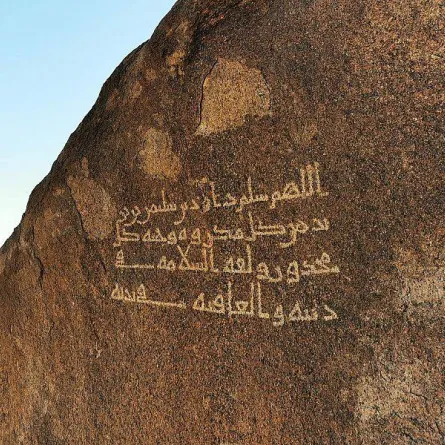 اللهم سلم داود بن سليمن بن يز
يد من كل مكروه وقه كل
محذور ولقه السلامه في
دينه والعافيه في بدنه